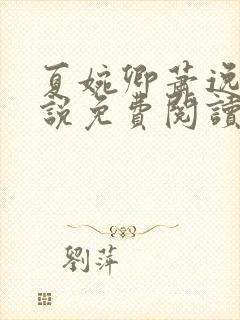 夏婉卿蕭逸
說免費閱讀
劉萍